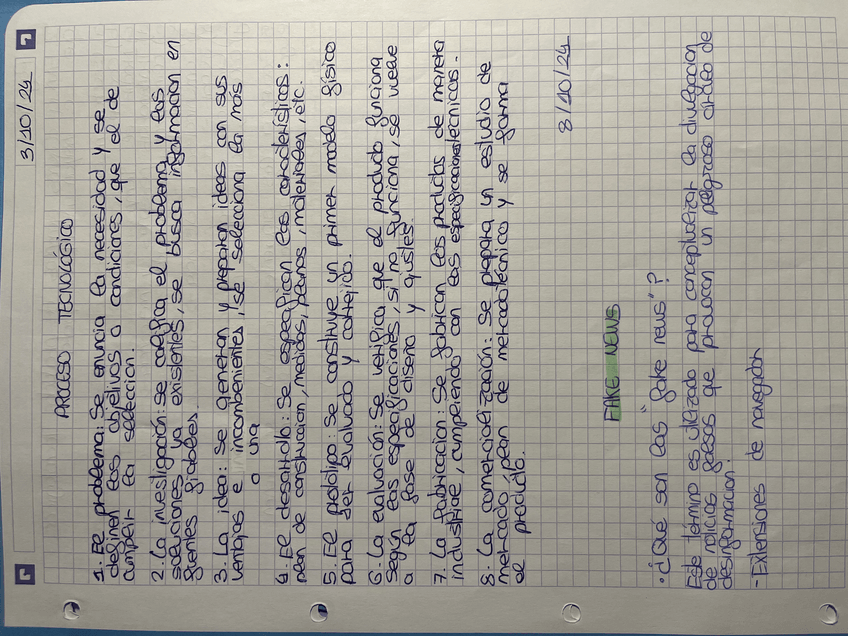 3/10/24
PROCESO TECNOLÓGICO
1. El problema: Se enuncia la necesidad y se
definen los objetivos o condiciones, que el de
cumplir la selección.
2. La investigación: se codifica el problema y las
soluciones ya existentes, se busca información en
fuentes fiables.
3. La idea: Se generan y preparan ideas con sus
ventajas e incombenientes, se selecciona la más
o una
4. El desarrollo: Se especifican las características:
plan de construcción, medidas, planos, materiales, etc.
5. El prototipo: Se construye un primer modelo físico
para ser evaluado y correjido.
6. La evaluación: Se verifica que el producto funciona
según las especificaciones, si no funciona, se vuelve
a la fase de diseño y ajustes.
7. La fabricacion: Se fabrican los productos de manera
industrial, cumpliendo con las especificaciones técnicas.
8. La comercialización: Se prepara un estudio de
mercado, plan de mercadotécnico y se forma
el producto.
8/10/24
FAKE NEWS
• ¿Qué son las "fake news"?
Este término es utilizado para conceptualizar la divulgación
de noticias falsas que provocan un peligroso círculo de
desinformación.
- Extensiones de navegador